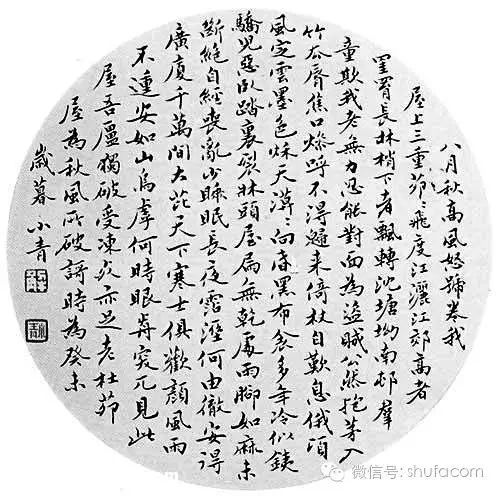 八月秋高風怒號卷我
屋上三重茆〻飛度江灑江郊高者
罣罥長林梢下者飄轉沈塘坳南邨羣
童欺我老無力忍能對面為盜賊公然抱茅入
竹去脣焦口燥呼不得歸來倚杖自歎息俄頃
風定雲墨色秌天漠〻向昏黑布衾多年冷似鐵
驕兒惡臥踏裏裂牀頭屋漏無乾處雨腳如麻未
斷絕自經喪亂少睡眠長夜霑溼何由徹安得
廣廈千萬間大庇天下寒士俱歡顏風雨
不動安如山烏虖何時眼前突兀見此
屋吾廬獨破受凍死亦足老杜茆
屋為秋風所破謌時為癸未
歲暮小青
微信号: shufacom